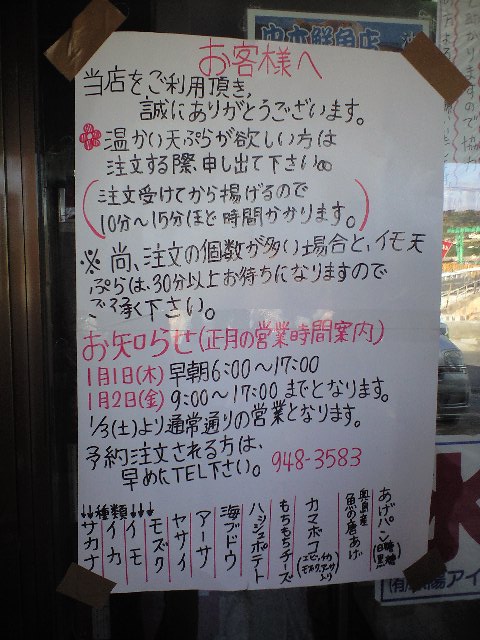 お客様へ
当店をご利用頂き、
誠にありがとうございます。
温かい天ぷらが欲しい方は
注文する際、申し出て下さい。
(注文受けてから揚げるので
10分〜15分ほど時間かかります。)
※尚、注文の個数が多い場合と、イモ天
ぷらは、30分以上お待ちになりますので
ご了承下さい。
お知らせ(正月の営業時間案内)
1月1日(木)早朝6:00〜17:00
1月2日(金)9:00〜17:00までとなります。
1/3(土)より通常通りの営業となります。
予約注文される方は、
早めにTEL下さい。948-3583
↓↓種類↓↓↓
サカナ
イカ
イモ
モズク
ヤサイ
アーサ
海ブドウ
ハッシュポテト
もちもちチーズ
カマボコ
奥武島産
魚の唐あげ
あげパン